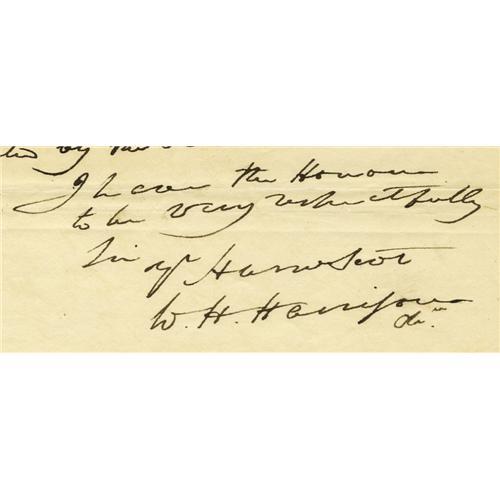 by the
I have the Honour
to be very respectfully
Sir yr Hum Servt
W. H. Harrison